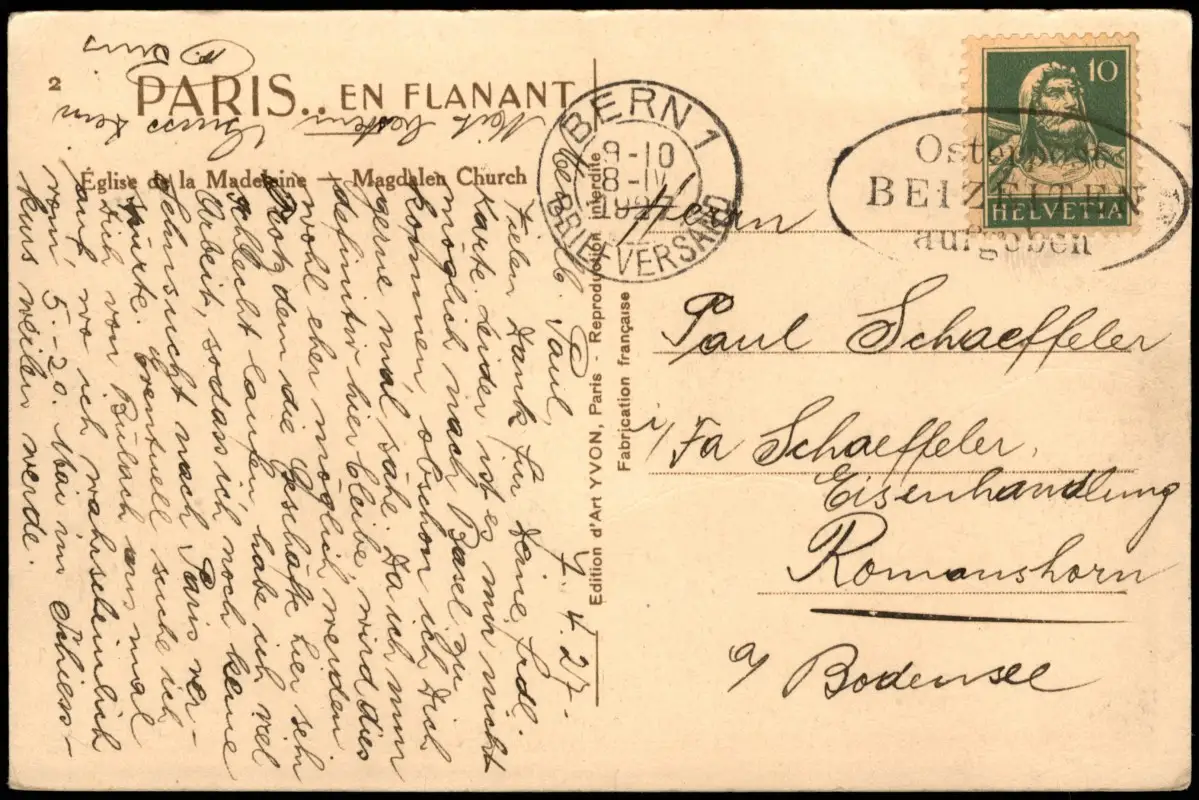 2
PARIS.. EN FLANANT
Église de la Madeleine — Magdalen Church
7.4.27.
Mein lb. Paul,
Vielen Dank für Deine frdl.
Karte. Leider ist es mir nicht
möglich nach Basel zu
kommen, obschon ich Dich
gerne mal sähe. Da ich nun
definitiv hier bleibe, wird dies
wohl eher möglich werden
Trotzdem die Geschäfte hier sehr
schlecht laufen, habe ich viel
Arbeit, sodass ich noch keine
Sehnsucht nach Paris ver-
spürte. Eventuell suche ich
Dich von Bülach aus mal
auf, wo ich wahrscheinlich
vom 5.-20. Mai im Schiess-
kurs weilen werde.
Mit besten
Grüsse Dein
Edition d'Art YVON, Paris - Reproduction interdite
Fabrication française
BERN 1
9-10
8-IV
1927
BRIEFVERSAND
Osterpost
BEIZEITEN
aufgeben
10
HELVETIA
Herrn
Paul Schaeffeler
i/Fa Schaeffeler,
Eisenhandlung
Romanshorn
a/ Bodensee